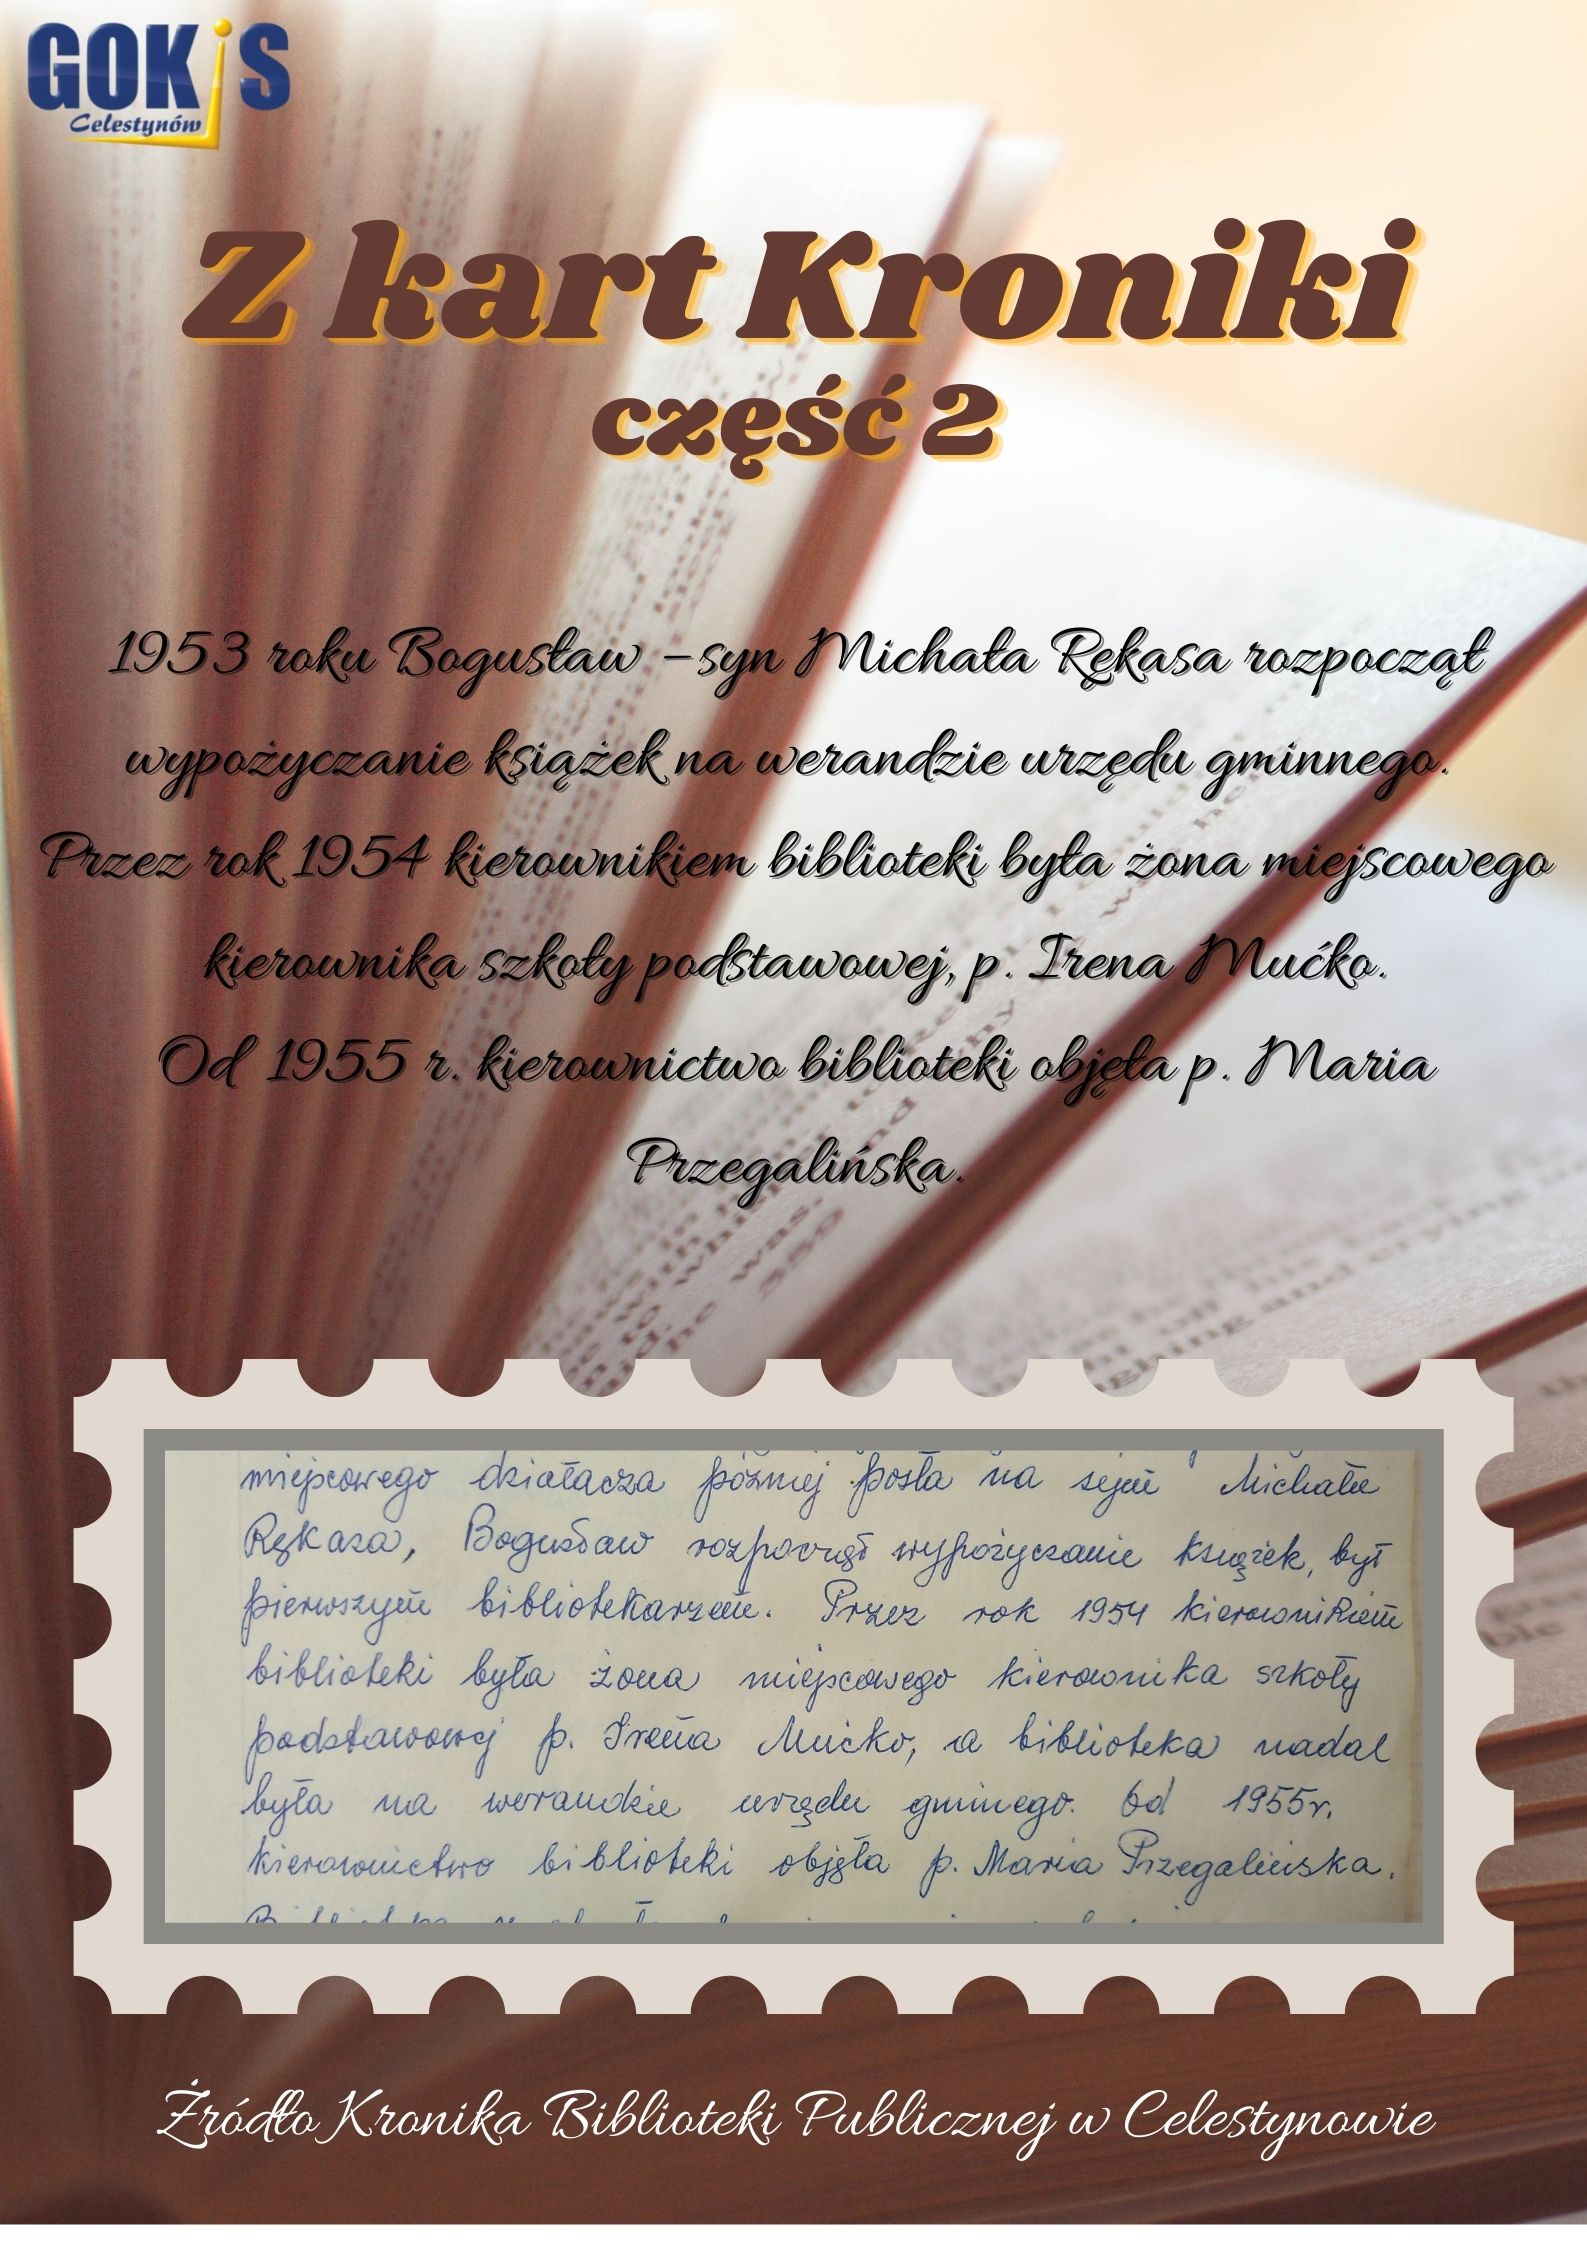 GOK i S
Celestynów
Z kart Kroniki
część 2
1953 roku Bogusław – syn Michała Rękasa rozpoczął
wypożyczanie książek na werandzie urzędu gminnego.
Przez rok 1954 kierownikiem biblioteki była żona miejscowego
kierownika szkoły podstawowej, p. Irena Mućko.
Od 1955 r. kierownictwo biblioteki objęła p. Maria
Przegalińska.
miejscowego działacza później posła na sejm Michała
Rękasa, Bogusław rozpoczął wypożyczanie książek, był
pierwszym bibliotekarzem. Przez rok 1954 kierownikiem
biblioteki była żona miejscowego kierownika szkoły
podstawowej p. Irena Mućko, a biblioteka nadal
była na werandzie urzędu gminego. Od 1955r.
kierownictwo biblioteki objęła p. Maria Przegalińska.
Źródło Kronika Biblioteki Publicznej w Celestynowie